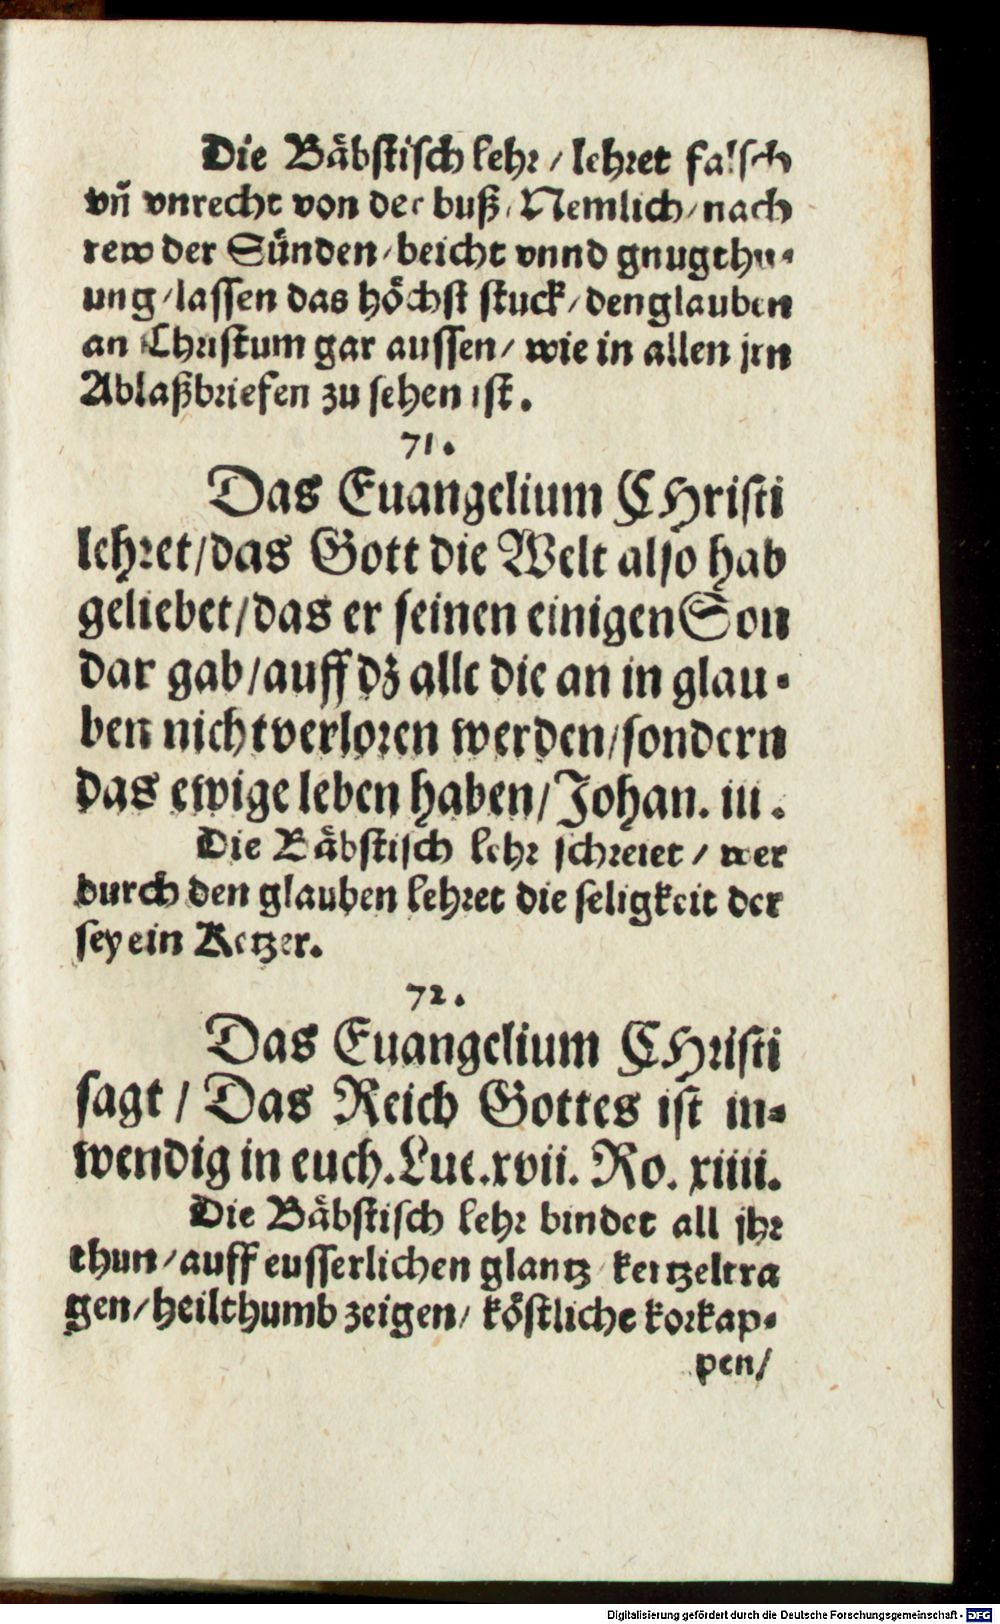 Die Bäbstisch lehr / lehret falsch
vñ vnrecht von der buß / Nemlich / nach
rew der Sünden / beicht vnnd gnugthu-
ung / lassen das höchst stuck / den glauben
an Christum gar aussen / wie in allen jrn
Ablaßbriefen zu sehen ist.
71.
Das Euangelium CHristi
lehret / das Gott die Welt also hab
geliebet / das er seinen einigen Son
dar gab / auff dz alle die an in glau-
ben nicht verloren werden / sondern
das ewige leben haben / Johan. iii.
Die Bäbstisch lehr schreiet / wer
durch den glauben lehret die seligkeit der
sey ein Ketzer.
72.
Das Euangelium CHristi
sagt / Das Reich Gottes ist in-
wendig in euch. Luc. xvii. Ro. xiiii.
Die Bäbstisch lehr bindet all jhr
thun / auff eusserlichen glantz / kertzeltra
gen / heilthumb zeigen / köstliche korkap-
pen /
Digitalisierung gefördert durch die Deutsche Forschungsgemeinschaft - DFG